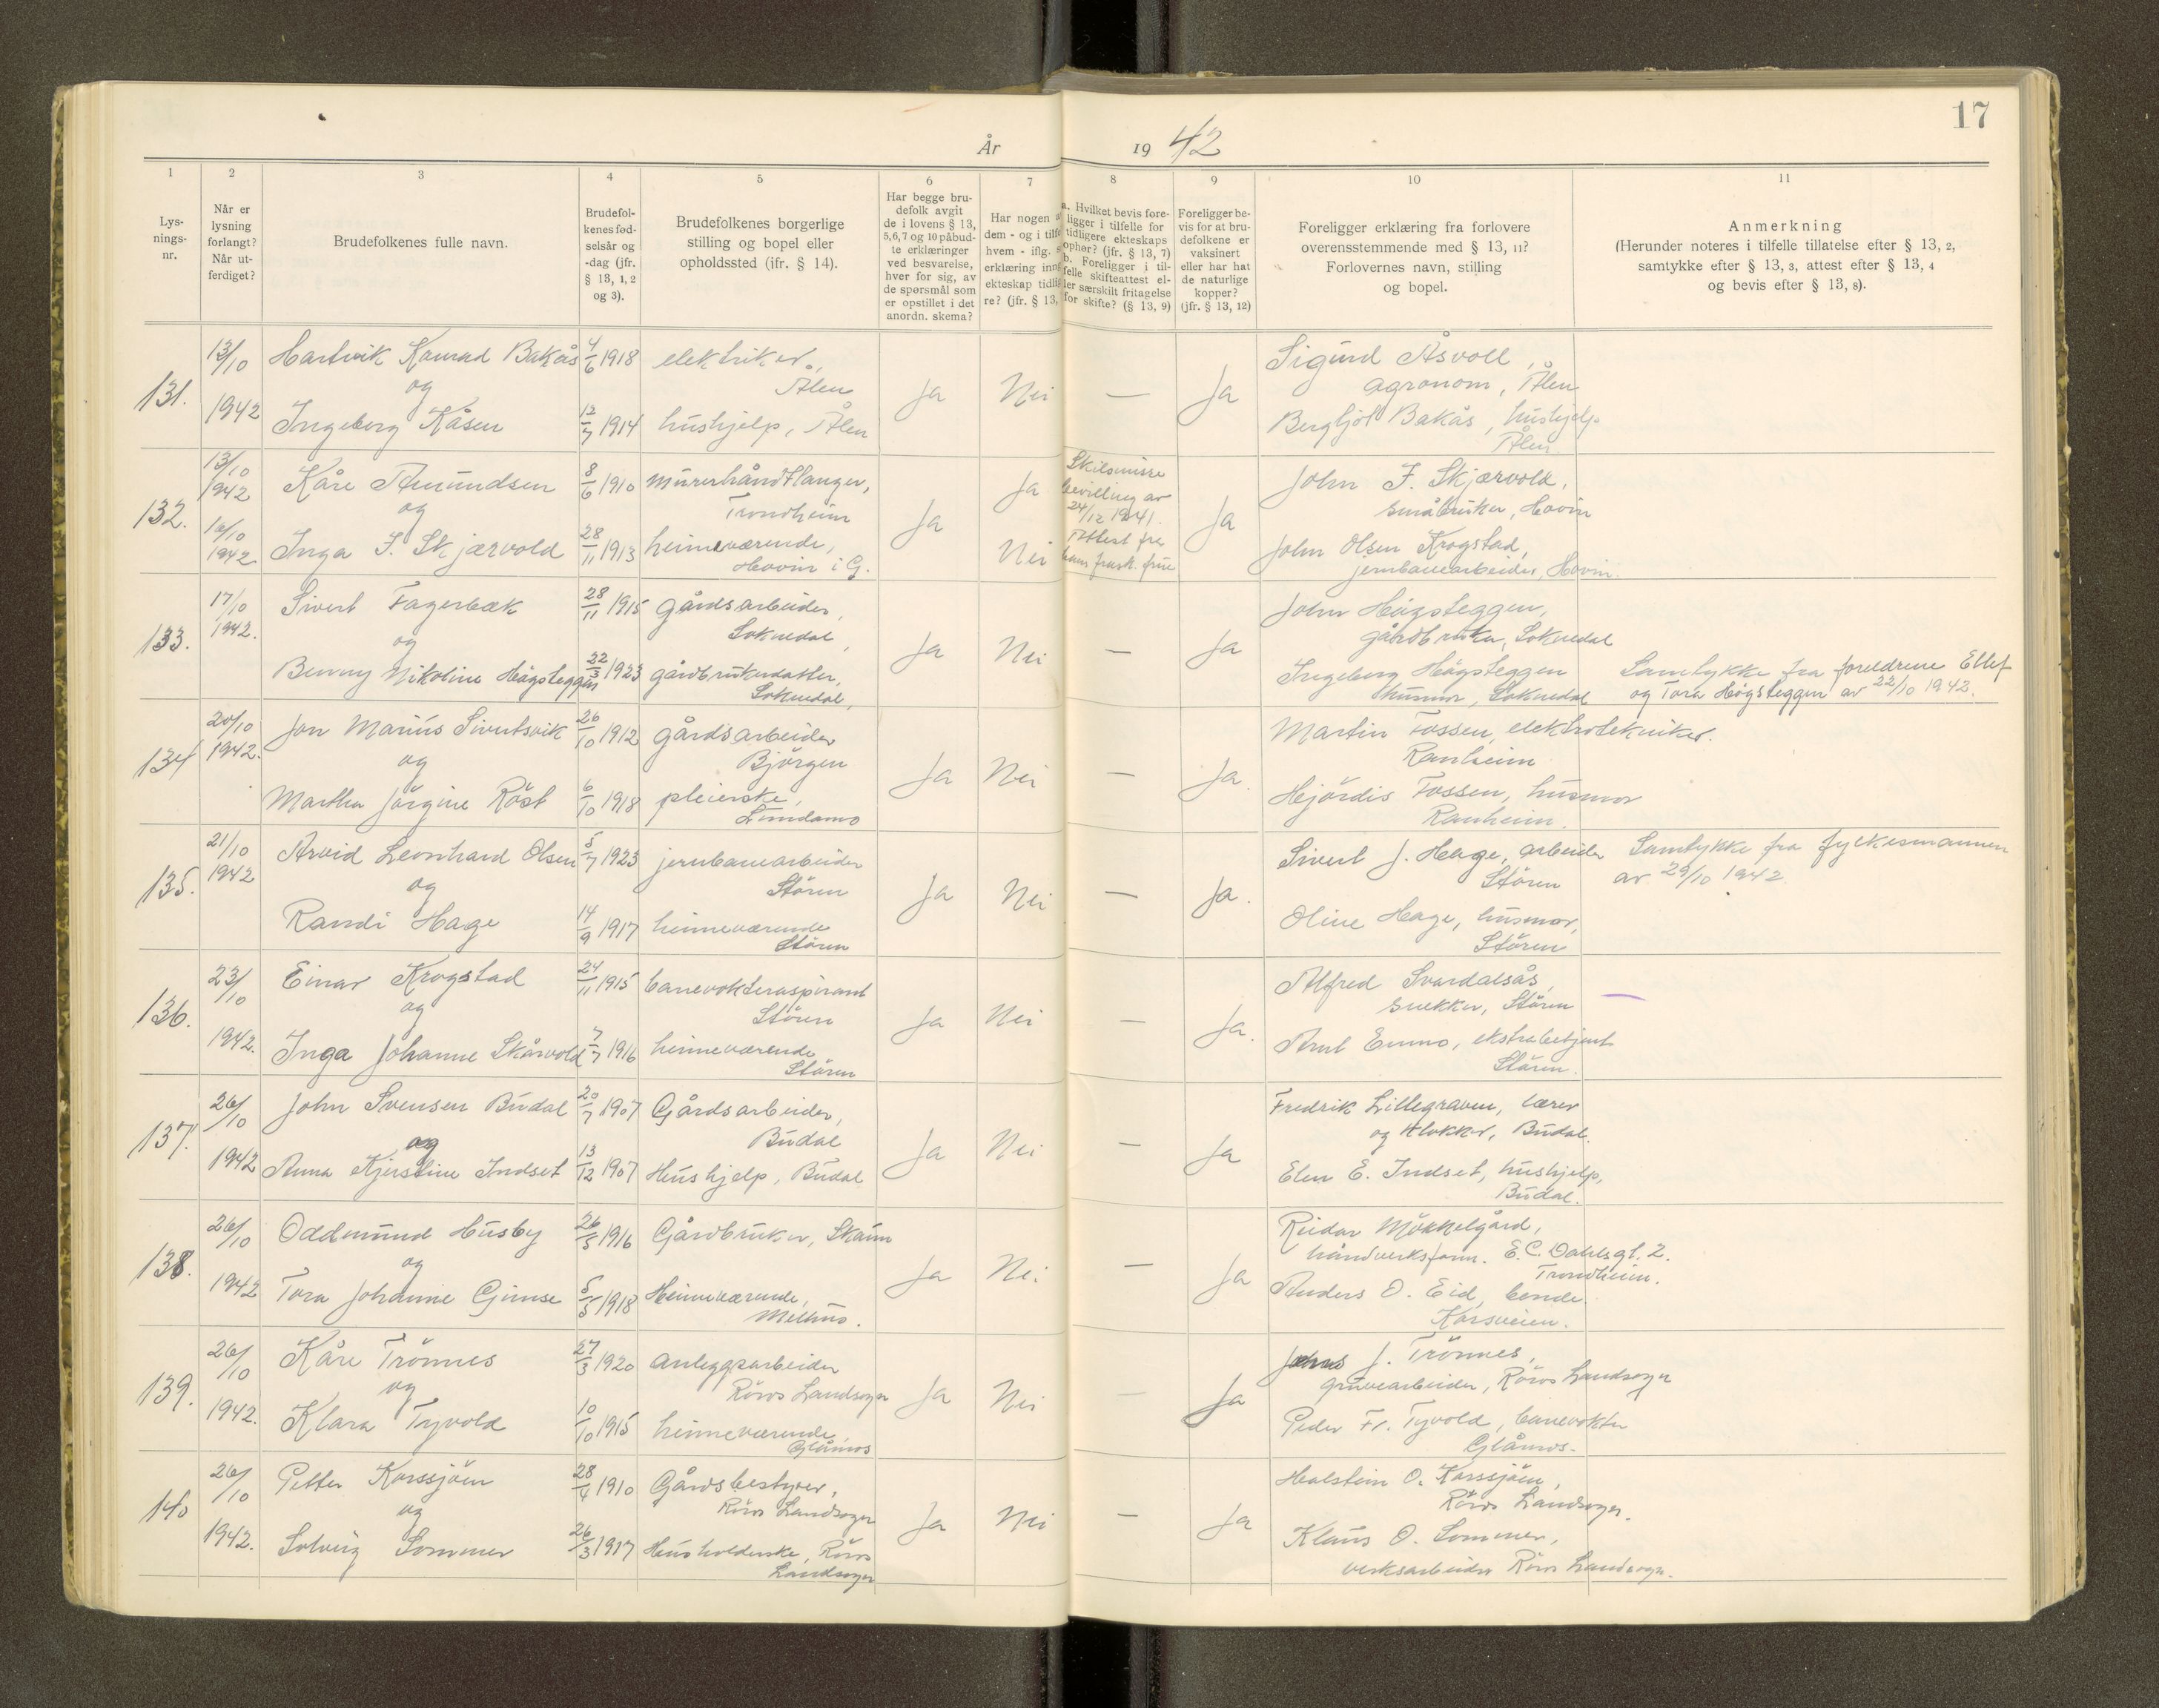 17
År 1942
1 2 3 4 5 6 7 8 9 10 11
Lys-
nings-
nr.
Når er
lysning
forlangt?
Når ut-
ferdiget?
Brudefolkenes fulle navn.
Brudefol-
kenes fød-
selsår og
-dag (jfr.
§ 13, 1, 2
og 3).
Brudefolkenes borgerlige
stilling og bopel eller
opholdssted (jfr. § 14).
Har begge bru-
defolk avgit
de i lovens § 13,
5,6,7 og 10 påbud-
te erklæringer
ved besvarelse,
hver for sig, av
de spørsmål som
er opstillet i det
anordn. skema?
Har nogen
dem - og i tilfe
hvem - iflg.
erklæring inng
ekteskap tidlig
re? (jfr. § 13,
a. Hvilket bevis fore-
ligger i tilfelle for
tidligere ekteskaps
ophør? (jfr. § 13, 7)
b. Foreligger i til-
felle skifteattest el-
ler særskilt fritagelse
for skifte? (§ 13, 9)
Foreligger be-
vis for at bru-
defolkene er
vaksinert
eller har hat
de naturlige
kopper?
(jfr. § 13, 12)
Foreligger erklæring fra forlovere
overensstemmende med § 13, 11?
Forlovernes navn, stilling
og bopel.
Anmerkning
(Herunder noteres i tilfelle tillatelse efter § 13, 2,
samtykke efter § 13, 3, attest efter § 13, 4
og bevis efter § 13, 8).
131.
13/10
1942
Hartvik Konrad Bakås
og
Ingeborg Kåsen
4/6 1918
12/7 1914
elektriker,
Ålen
hushjelp, Ålen
Ja
Nei
—
Ja
Sigurd Åsvoll,
agronom, Ålen
Bergljot Bakås, hushjelp
Ålen
132.
13/10
1942
1942
Kåre Amundsen
og
Inga J. Skjærvold
8/6 1910
28/11 1913
murerhåndtlanger,
Trondheim
heimeværende,
Hovin i G.
Ja
Ja
Nei
Skilsmisse
bevilling av
24/12 1941.
Attest fra
hans frask. frue
Ja
John J. Skjærvold,
småbruker, Hovin
John Olsen Krogstad,
jernbanearbeider, Hovin.
133.
17/10
1942.
Sivert Fagerbæk
og
Benny Nikoline Högsteggen
28/11 1915
22/3 1923
gårdsarbeider,
Soknedal,
gårdbrukerdatter,
Soknedal,
Ja
Nei
—
Ja
John Högsteggen,
gårdbruker, Soknedal
Ingeborg Högsteggen
husmor, Soknedal
Samtykke fra foreldrene Ellef
og Tora Högsteggen av 22/10 1942.
134
20/10
1942.
Jon Marius Sivertsvik
og
Martha Jörgine Röst
26/10 1912
6/10 1918
gårdsarbeider
Björgen
pleierske,
Lundamo
Ja
Nei
—
Ja.
Martin Fossen, elektrotekniker.
Ranheim
Hjördis Fossen, husmor
Ranheim.
135.
21/10
1942
Arvid Leonhard Olsen
og
Randi Hage
5/7 1923
14/9 1917
jernbanearbeider
Stören
heimeværende
Stören
Ja
Nei
—
Ja.
Sivert J. Hage, arbeider
Stören
Oline Hage, husmor,
Stören
Samtykke fra fylkesmannen
av 29/10 1942.
136.
23/10
1942.
Einar Krogstad
og
Inga Johanne Skårvold
24/11 1915
7/7 1916
banevokteraspirant
Stören
heimeværende
Stören
Ja
Nei
—
Ja.
Alfred Svardalsås,
snekker, Stören
Arnt Enmo, ekstrabetjent
Stören.
137.
26/10
1942
John Svensen Budal
og
Anna Kjerstine Indset
20/7 1907
13/12 1907
Gårdsarbeider,
Budal
Hushjelp, Budal
Ja
Nei
—
Ja
Fredrik Lillegraven, lærer
og klokker, Budal.
Elen E. Indset, hushjelp,
Budal.
138.
26/10
1942
Oddmund Husby
og
Tora Johanne Gimse
26/5 1916
5/5 1918
Gårdbruker, Skaun
Heimeværende,
Melhus.
Ja
Nei
—
Ja
Reidar Mökkelgård,
håndverksform. E.C. Dahlsgt. 2.
Trondheim.
Anders O. Eid, bonde.
Korsveien.
139.
26/10
1942.
Kåre Trönnes
og
Klara Tyvold
27/3 1920
10/10 1915
anleggsarbeider
Röros Landsogn
heimeværende,
Glåmos
Ja
Nei
—
Ja
J. Trönnes,
gruvearbeider, Röros Landsogn
Peder Fr. Tyvold, banevokter
Glåmos.
140
26/10
1942.
Petter Korssjöen
og
Solveig Sommer
28/4 1910
26/3 1917
Gårdsbestyrer,
Röros Landsogn
Husholderske, Röros
Landsogn
Ja
Nei
—
Ja
Halstein O. Korssjöen,
Röros Landsogn.
Klaus O. Sommer,
verksarbeider Röros Landsogn.